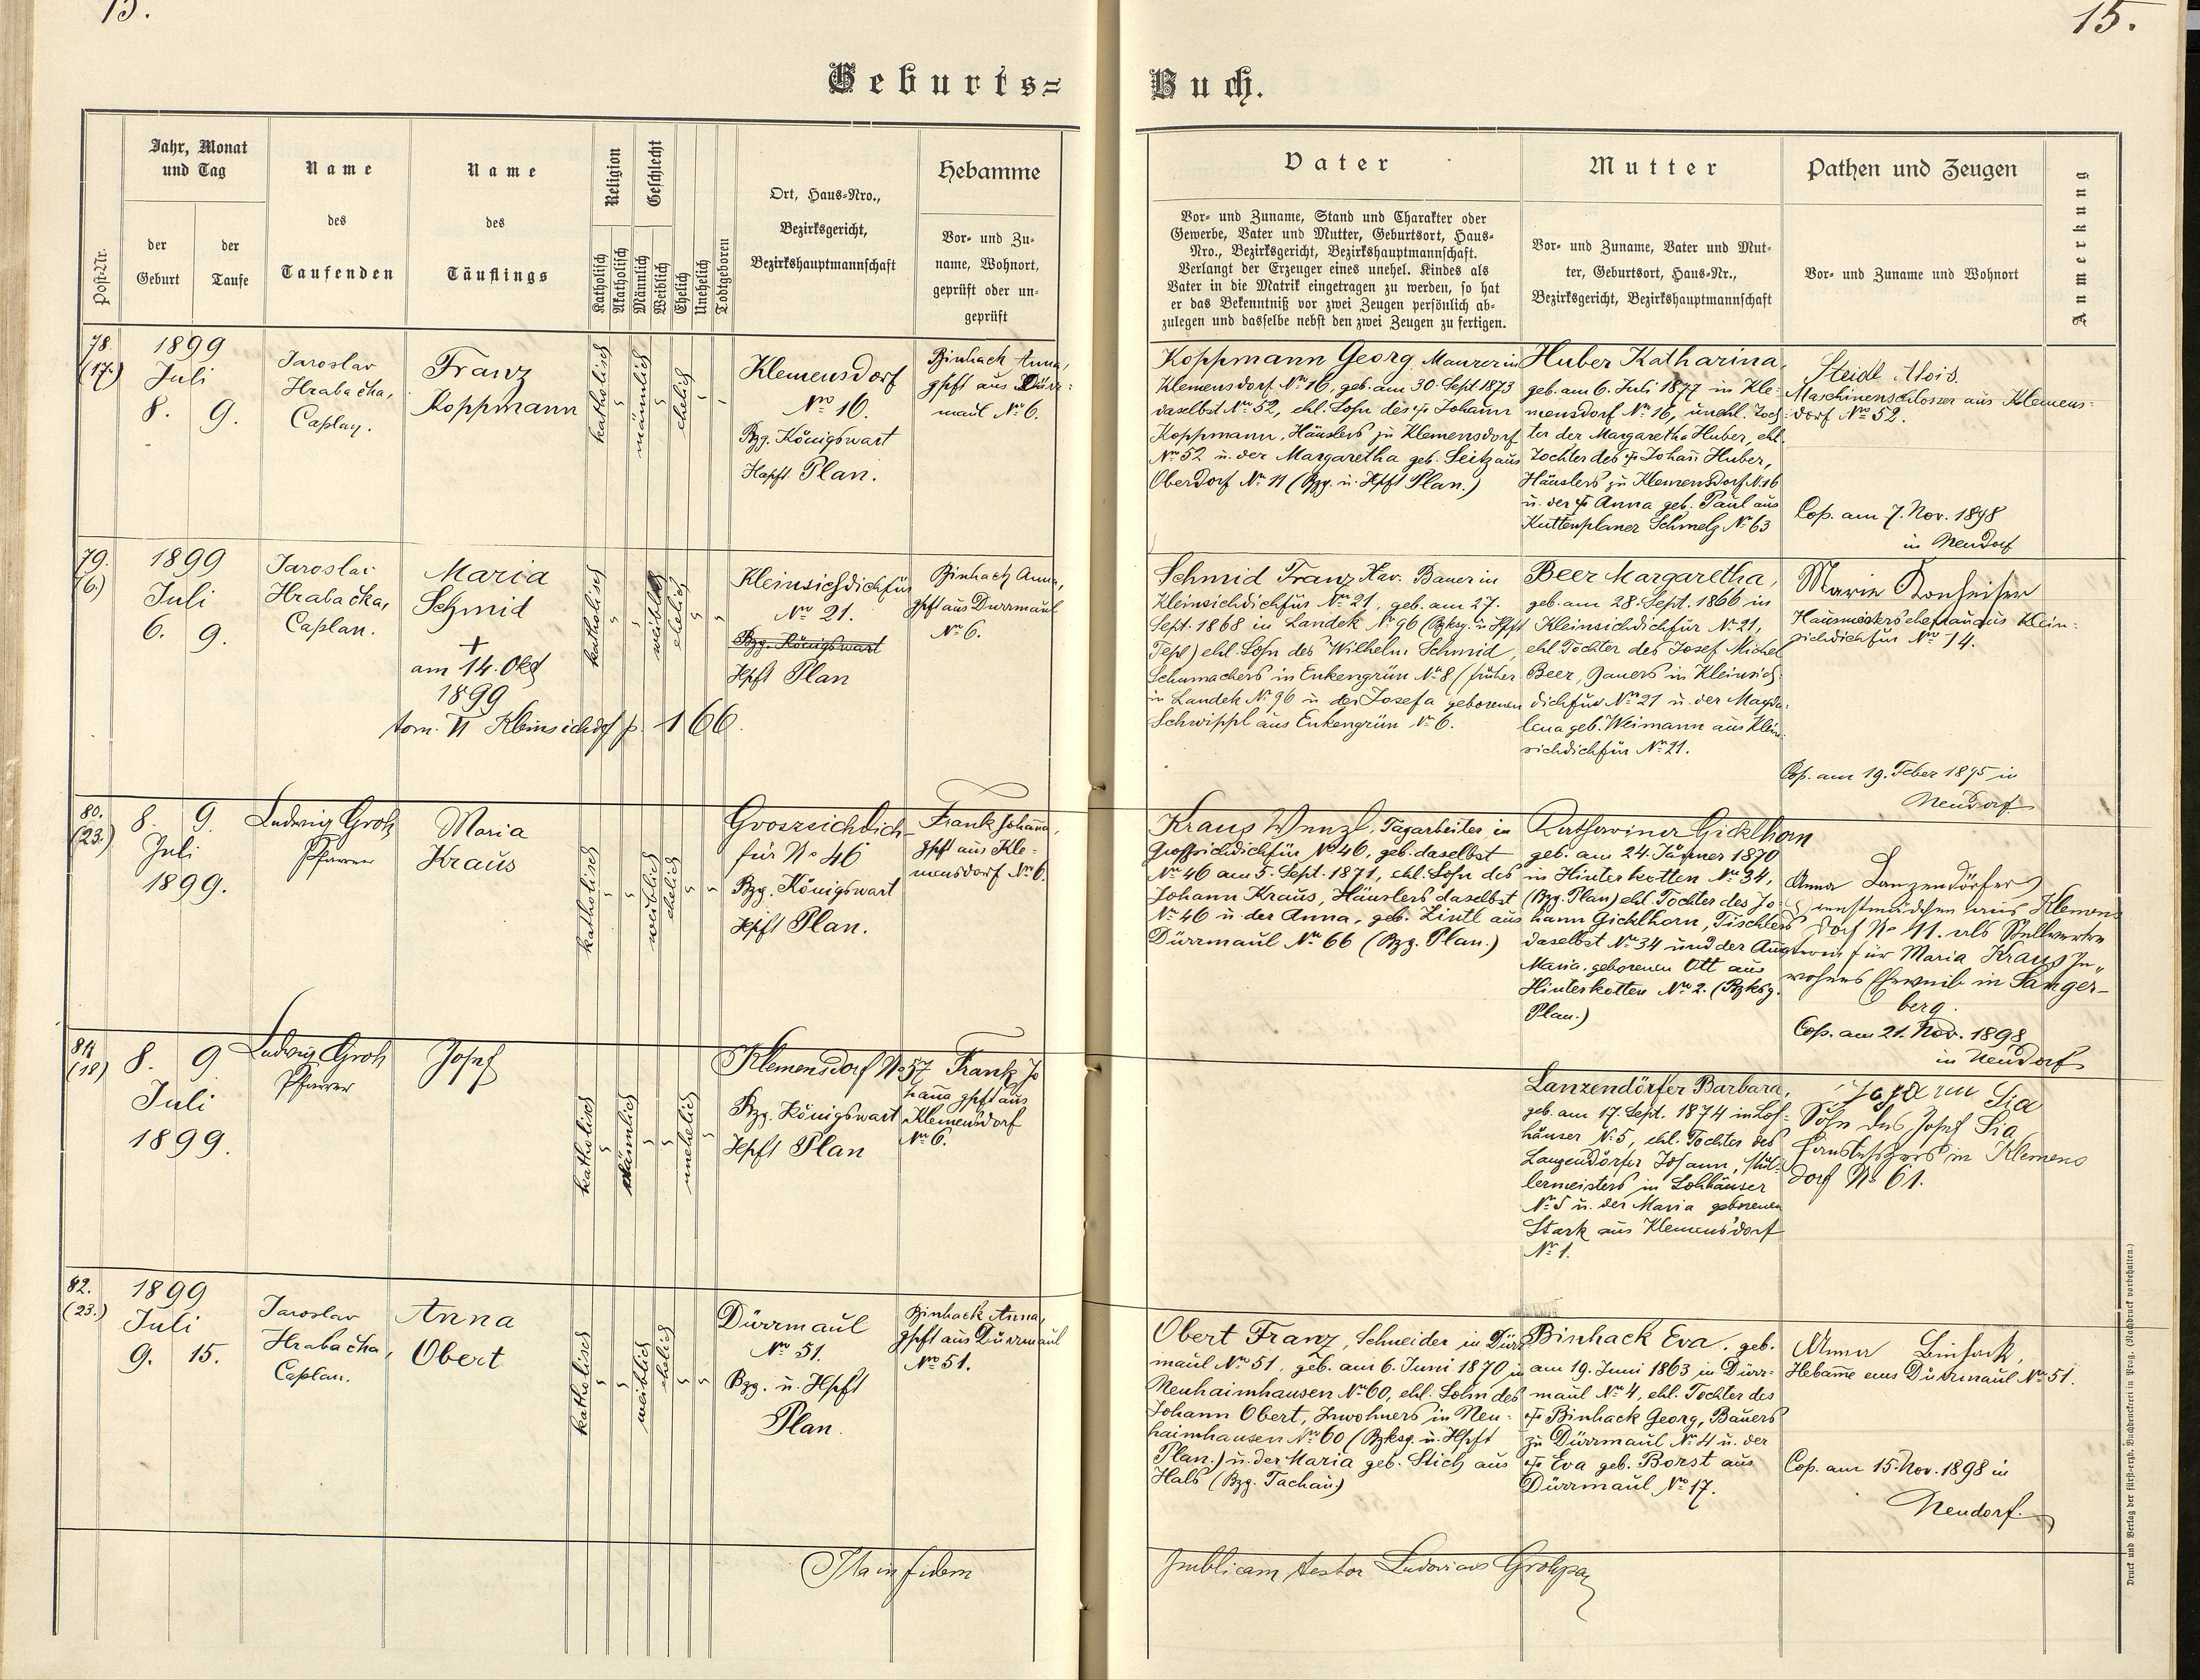 15.
15.
Geburts=
Buch.
Post-Nr.
Jahr, Monat
und Tag
der
Geburt
der
Taufe
Name
des
Taufenden
Name
des
Täuflings
Religion
Katholisch
Akatholisch
Geschlecht
Männlich
Weiblich
Ehelich
Unehelich
Todtgeboren
Ort, Haus=Nro.,
Bezirksgericht,
Bezirkshauptmannschaft
Hebamme
Vor= und Zu=
name, Wohnort,
geprüft oder un=
geprüft
Vater
Vor= und Zuname, Stand und Charakter oder
Gewerbe, Vater und Mutter, Geburtsort, Haus=
Nro., Bezirksgericht, Bezirkshauptmannschaft.
Verlangt der Erzeuger eines unehel. Kindes als
Vater in die Matrik eingetragen zu werden, so hat
er das Bekenntniß vor zwei Zeugen persönlich ab=
zulegen und dasselbe nebst den zwei Zeugen zu fertigen.
Mutter
Vor= und Zuname, Vater und Mut=
ter, Geburtsort, Haus=Nr.,
Bezirksgericht, Bezirkshauptmannschaft
Pathen und Zeugen
Vor= und Zuname und Wohnort
Anmerkung
78.
(17.)
1899
Juli
8. 9.
Jaroslav
Hrabačka,
Caplan.
Franz
Koppmann
katholisch
männlich
ehelich
Klemensdorf
Nro 16.
Bzg. Königswart
Hapft Plan.
Binhack Anna,
gpft aus Dürr=
maul No 6.
Koppmann Georg Maurer in
Klemensdorf Nro 16, geb. am 30. Sept. 1873
daselbst Nro 52, ehl. Sohn des + Johann
Koppmann, Häuslers zu Klemensdorf
Nro 52 u. der Margaretha geb. Seitz aus
Oberdorf No 11 (Bzg. u. Hpft Plan.)
Huber Katharina,
geb. am 6. Juli 1877 in Kle=
mensdorf No 16, unehl. Toch=
ter der Margaretha Huber, ehl.
Tochter des + Johan̄ Huber,
Häuslers zu Klemensdorf N. 16
u. der + Anna geb. Paul aus
Kuttenplaner Schmelz No 63
Steidl Alois.
Maschinenschlosser aus Klemens=
dorf Nro 52.
Cop. am 7. Nov. 1898
in Neudorf
79.
(6)
1899
Juli
6. 9.
Jaroslav
Hrabačka,
Caplan.
Maria
Schmid
+
am 14. Okt
1899
tom. VI Kleinsichdf p. 166.
katholisch
weiblich
ehelich
Kleinsichdichfür
No 21.
Bzg. Königswart
Hpft Plan
Binhack Anna,
gpft aus Dürrmaul
No 6.
Schmid Franz Xav. Bauer in
Kleinsichdichfür No 21, geb. am 27.
Sept. 1868 in Landek No 96 (Bzksg. u Hpft
Tepl) ehl. Sohn des Wilhelm Schmid,
Schumachers in Enkengrün No 8 (früher
in Landek No 96 u. der Josefa geborenen
Schwippl aus Enkengrün No 6.
Beer Margaretha,
geb. am 28. Sept. 1866 in
Kleinsichdichfür No 21,
ehl Tochter des Josef Michel
Beer, Bauers in Kleinsich=
dichfür No 21 u. der Magda=
lena geb. Weimann aus Klein=
sichdichfür No 21.
Marie
Klein=
sichdichfür No 14.
Cop. am 19. Feber 1895 in
Neudorf
80.
(23.)
8. 9.
Juli
1899.
Ludwig Groh
Pfarrer
Maria
Kraus
katholisch
weiblich
ehelich
Groszsichdich-
für No 46
Bzg. Königswart
Hpft Plan.
Frank Johan̄a,
gpft aus Kle=
mensdorf No 6.
Kraus Wenzl, Tagarbeiter in
Großsichdichfür No 46, geb. daselbst
No 46 am 5. Sept. 1871, ehl. Sohn des
Johann Kraus, Häuslers daselbst
No 46 u. der Anna, geb. Zintl aus
Dürrmaul No 66 (Bzg. Plan.)
Katharina Gicklhorn
geb. am 24. Jänner 1870
in Hinterkotten No 34,
(Bzg. Plan) ehl. Tochter des Jo=
hann Gicklhorn, Tischlers
daselbst No 34 und der
Maria, geborenen Ott aus
Hinterkotten No 2. (Bzksg.
Plan.)
Anna Lanzendörfer
Dienstmädchen aus Klemens
dorf No 41. als Stellvertre
terin für Maria Kraus In„
wohners Eheweib in Sanger-
berg.
Cop. am 21. Nov. 1898
in Neudorf
81.
(18)
8. 9
Juli
1899.
Ludwig Groh
Pfarrer
Josef
katholisch
männlich
unehelich
Klemensdorf No 57
Bzg. Königswart
Hpft Plan
Frank Jo
han̄a gpft aus
Klemensdorf
No 6.
Lanzendörfer Barbara,
geb. am 17. Sept. 1874 in Loh=
häuser N. 5, ehl. Tochter des
Lanzendörfer Johann, Mül=
lermeisters in Lohhäuser
No 5 u. der Maria geborenen
Stark aus Klemensdorf
No 1.
Sia
Sohn des Josef Sia
in Klemens
dorf No 61.
82.
(23.)
1899
Juli
9. 15.
Jaroslav
Hrabačka,
Caplan.
Anna
Obert
katholisch
weiblich
ehelich
Dürrmaul
No 51.
Bzg. u. Hpft
Plan.
Binhack Anna,
gpft aus Dürrmaul
No 51.
Obert Franz, Schneider in Dürr=
maul No 51, geb. am 6. Juni 1870 in
Neuhaimhausen No 60, ehl. Sohn des
Johann Obert, Inwohners in Neu=
haimhausen No 60 (Bzksg. u. Hpft
Plan.) u. der Maria geb. Stich aus
Hals (Bzg. Tachau)
Binhack Eva, geb.
am 19. Juni 1863 in Dürr=
maul No 4, ehl. Tochter des
+ Binhack Georg, Bauers
zu Dürrmaul No 4 u. der
+ Eva geb. Borst aus
Dürrmaul No 17.
Anna Binhack,
Hebam̄e aus Dürrmaul No 51.
Cop. am 15. Nov. 1898 in
Neudorf.
Ita in fidem
publicam testor Ludovicus Groh
Druck und Verlag der fürst=erzb. Buchdruckerei in Prag. (Nachdruck vorbehalten.)